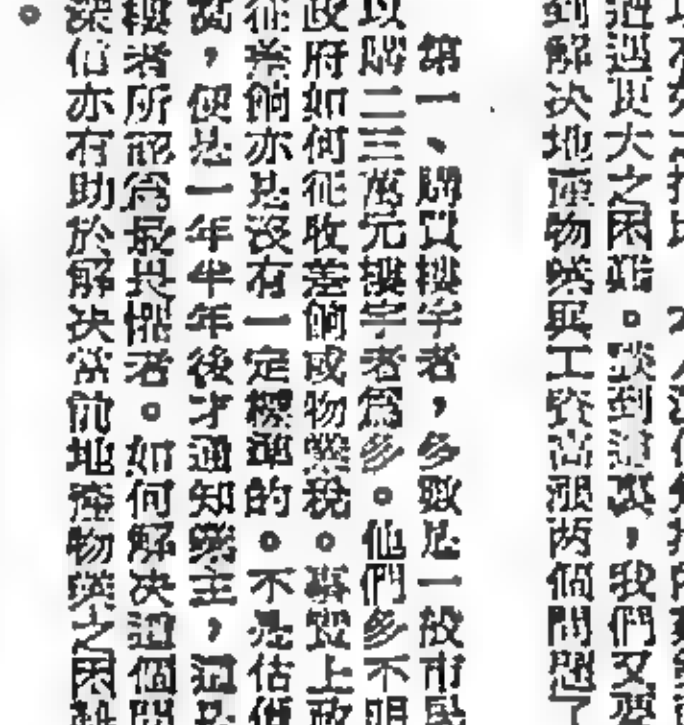 到解决地產物業與工資高漲两個問題了
遭遇更大之困難。談到這裏，我們又要
第一、購買樓宇者，多數是一般市民
以購二三萬元樓宇者爲多。他們多不明
政府如何征收差餉或物業稅。事實上政
征差餉亦是沒有一定標準的。不是估價
高，便是一年半年後才通知業主，這是
樓者所認爲最畏懼者。如何解决這個問
深信亦有助於解决當前地產物業之困難
。